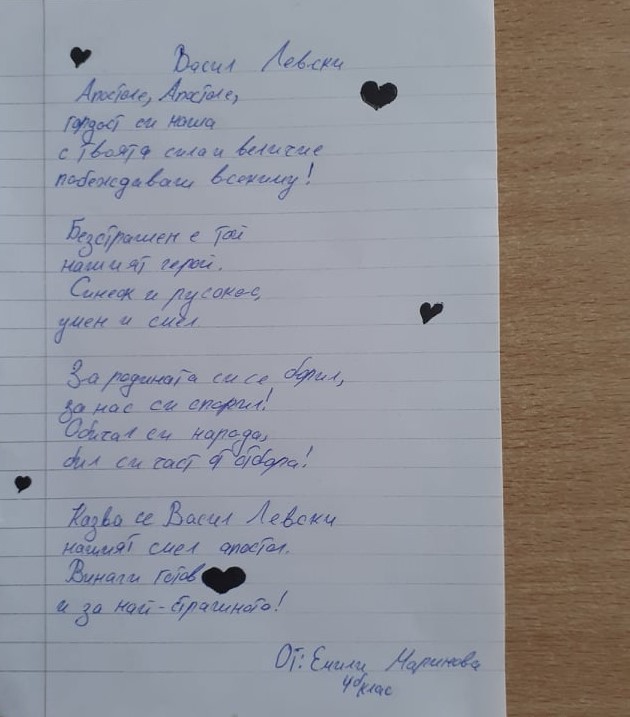 Васил Левски
Апостоле, Апостоле,
гордост си наша
с твоята сила и величие
побеждаваш всекиму!
Безстрашен е той
нашият герой.
Синеок и русокос,
умен и смел
За родината си се борил,
за нас си спорил!
Обичал си народа,
бил си част от отбора!
Казва се Васил Левски
нашият смел апостол.
Винаги готов
и за най-страшното!
От: Емили Маринова
4б клас